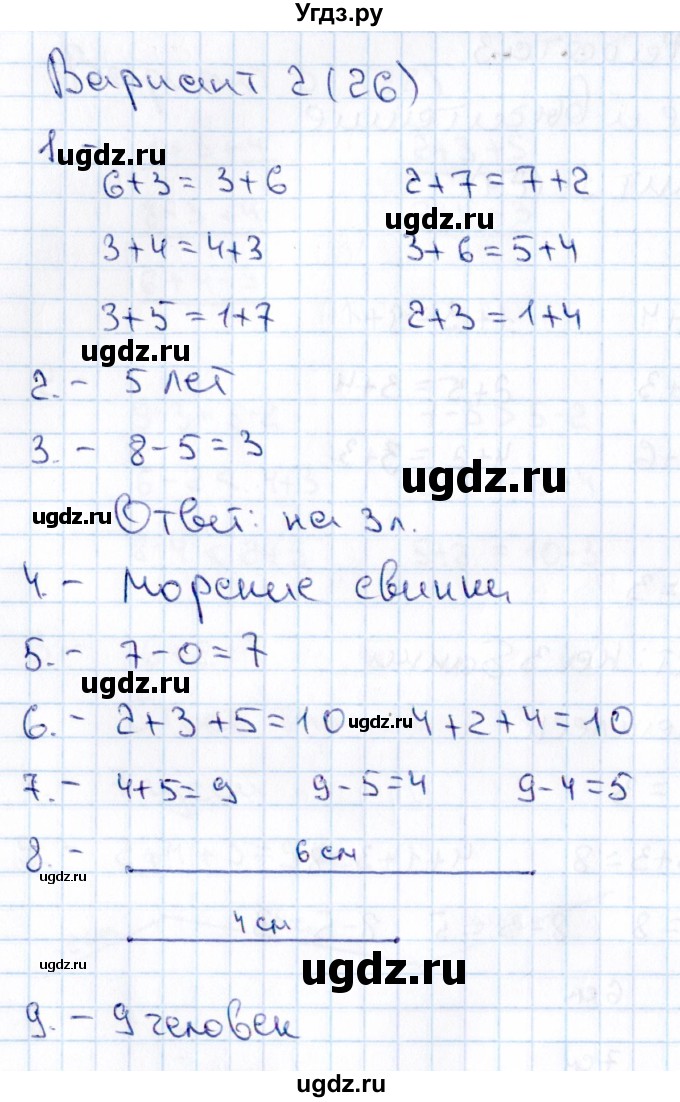 Угдз.ру
Вариант 2 (26)
1. -
ugdz.ru
6+3 = 3+6 2+7 = 7+2
ugdz.ru
3+4 = 4+3 3+6 = 5+4
3+5 = 1+7 2+3 = 1+4
ugdz.ru
2. - 5 лет
3. - 8-5 = 3
ugdz.ru
ugdz.ru Ответ: на 3 л.
4. - Морские свинки
5. - 7-0 = 7
ugdz.ru
6. - 2+3+5 = 10 ugdz.ru 4+2+4 = 10
7. - 4+5 = 9 9-5 = 4 9-4 = 5
8. - 6 см
ugdz.ru
4 см
ugdz.ru ugdz.ru
9. - 9 человек
ugdz.ru